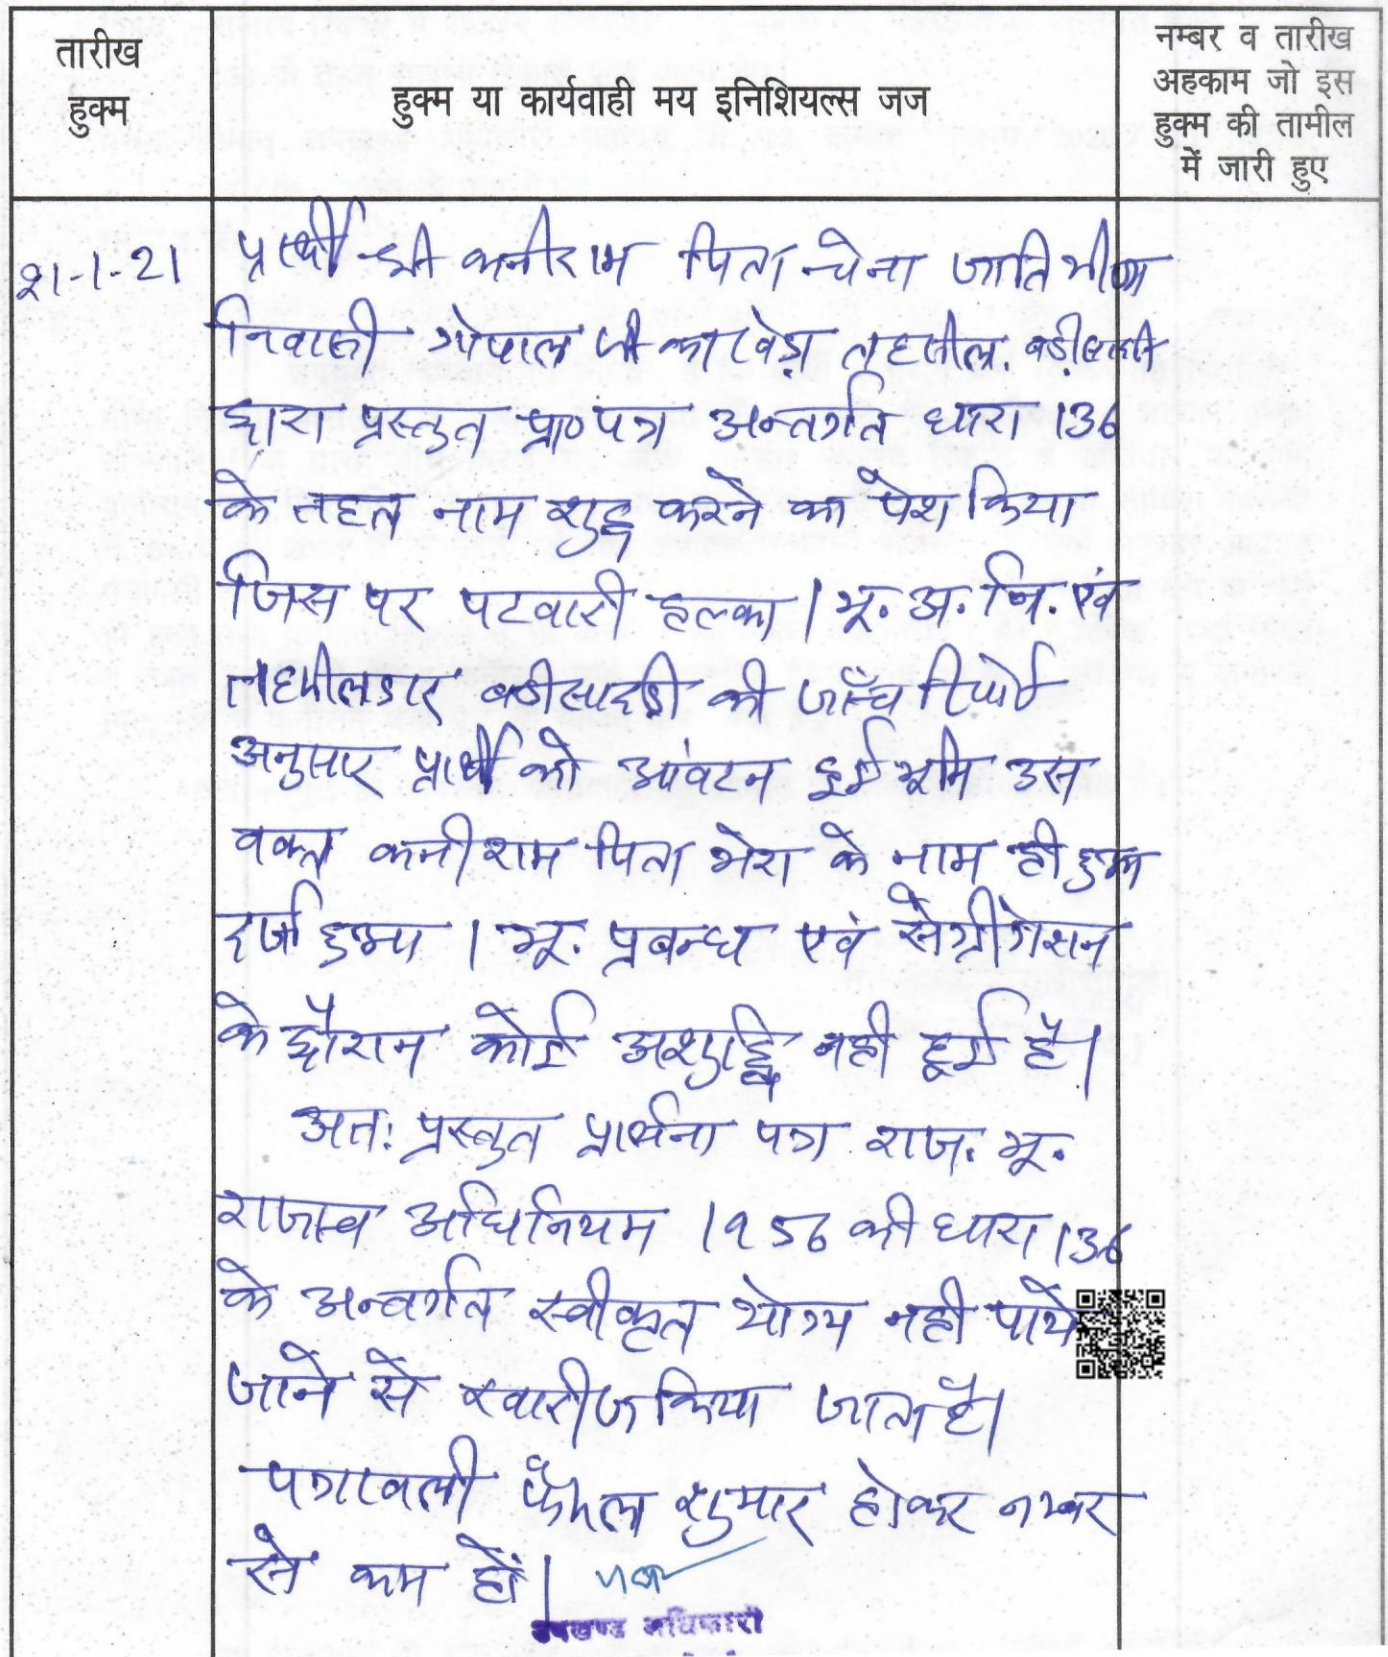 तारीख
हुक्म
हुक्म या कार्यवाही मय इनिशियल्स जज
नम्बर व तारीख
अहकाम जो इस
हुक्म की तामील
में जारी हुए
21-1-21
प्रार्थी श्री कनीराम पिता चेना जाति मीणा
निवासी गोपाल जी का खेड़ा तहसील. बड़ीसादड़ी
द्वारा प्रस्तुत प्रा० पत्र अन्तर्गत धारा 136
के तहत नाम शुद्ध करने का पेश किया
जिस पर पटवारी हल्का / भू. अ. नि. एवं
तहसीलदार बडीसादडी की जाँच रिपोर्ट
अनुसार प्रार्थी को आंवटन हुई भूमि उस
वक्त कनीराम पिता भेरा के नाम ही
दर्ज हुआ । भू. प्रबन्ध एवं सेग्रीगेशन
के दौरान कोई अशुद्धि नही हुई है।
अत: प्रस्तुत प्रार्थना पत्र राज. भू.
राजस्व अधिनियम 1956 की धारा 136
के अन्तर्गत स्वीकृत योग्य नही पाये
जाने से खारीज किया जाता है।
पत्रावली फैसल शुमार होकर नम्बर
से कम हो।
उपखण्ड अधिकारी